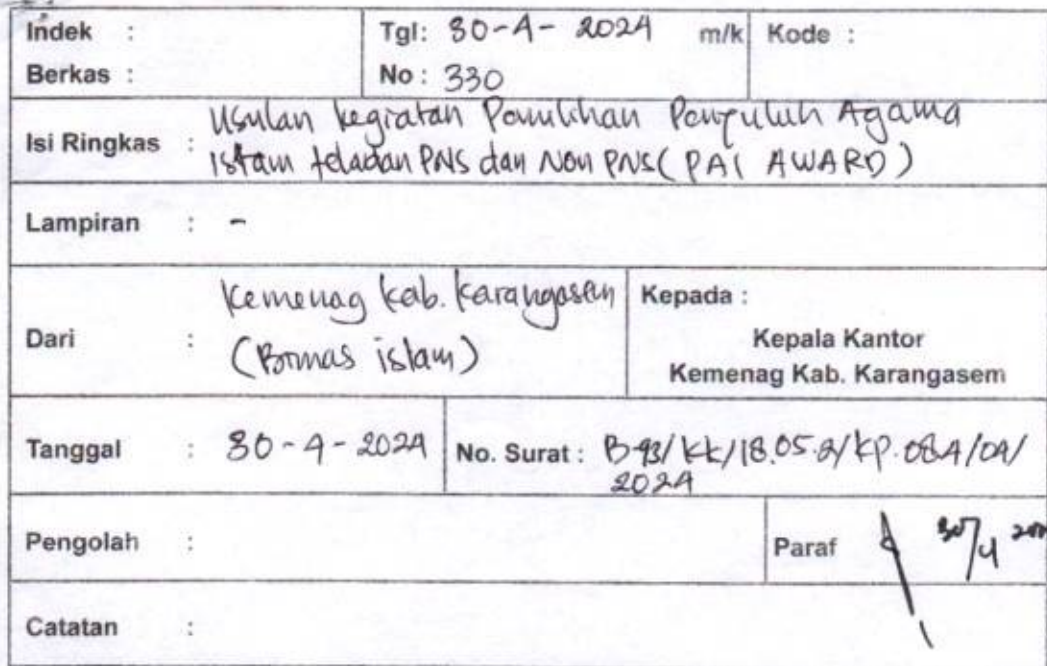 Indek : Tgl: 30-4-2024 m/k Kode :
Berkas : No : 330
Isi Ringkas : Usulan kegiatan Pemilihan Penyuluh Agama
Islam teladan PNS dan Non PNS (PAI AWARD)
Lampiran : -
Dari : Kemenag kab. Karangasem
(Bimas islam)
Kepada :
Kepala Kantor
Kemenag Kab. Karangasem
Tanggal : 30-4-2024 No. Surat : B-93/KK/18.05.2/KP.08.4/04/
2024
Pengolah : Paraf 30/4
Catatan :